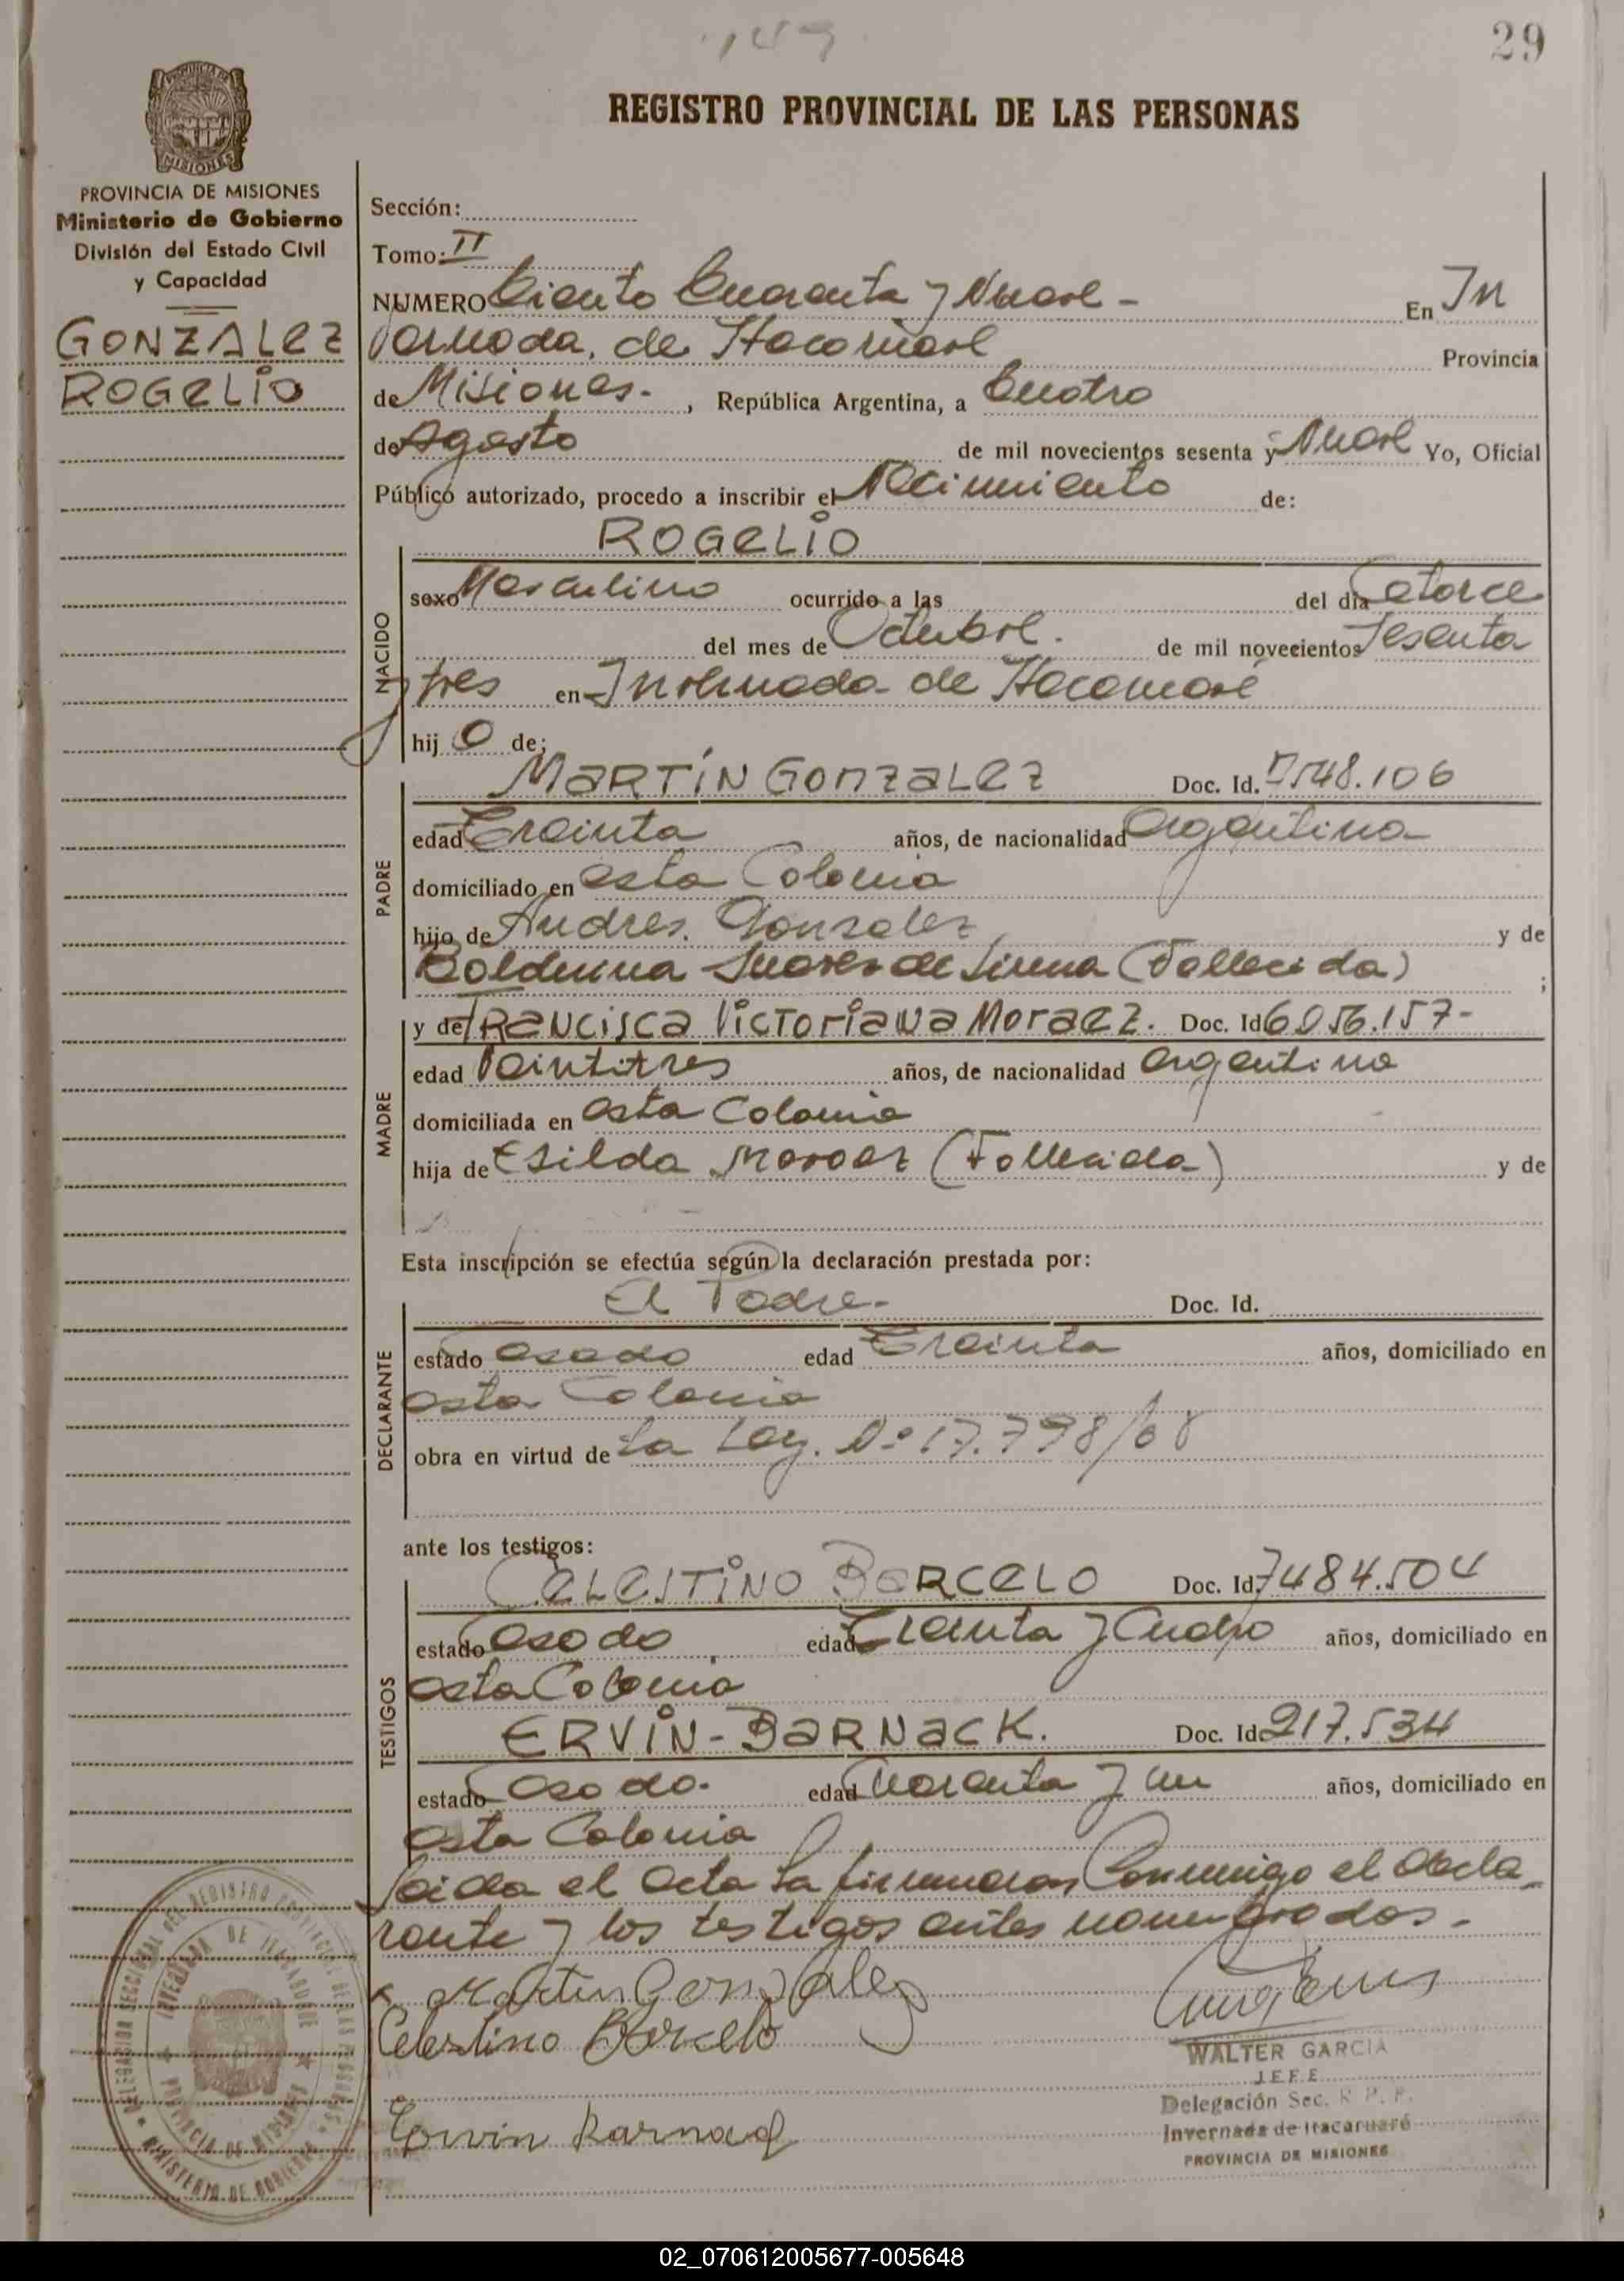 149
29
REGISTRO PROVINCIAL DE LAS PERSONAS
PROVINCIA DE MISIONES
Ministerio de Gobierno
División del Estado Civil
y Capacidad
GONZALEZ
ROGELIO
Sección:
Tomo: II
NUMERO Ciento Cuarenta y Nueve - En In
vernada de Itacaruare Provincia
de Misiones. , República Argentina, a Cuatro
de Agosto de mil novecientos sesenta y Nueve Yo, Oficial
Público autorizado, procedo a inscribir el Nacimiento de:
NACIDO
ROGELIO
sexo Masculino ocurrido a las del día Catorce
del mes de Octubre. de mil novecientos Sesenta
y tres en Invernada de Itacaruare
hij o de;
PADRE
MARTIN GONZALEZ Doc. Id. 7548.106
edad Treinta años, de nacionalidad Argentina
domiciliado en esta Colonia
hijo de Andres. Gonzalez y de
(Fallecida) ;
MADRE
y de FRANCISCA VICTORIANA MORAEZ. Doc. Id 6056.157-
edad Veintitres años, de nacionalidad Argentina
domiciliada en esta Colonia
hija de Esilda Moraez (Fallecida) y de
Esta inscripción se efectúa según la declaración prestada por:
DECLARANTE
El Padre- Doc. Id.
estado Casado edad Treinta años, domiciliado en
esta Colonia
obra en virtud de La Ley. Nº 17.778/68
ante los testigos:
TESTIGOS
CELESTINO BARCELO Doc. Id. 7484.504
estado Casado edad Treinta y Cuatro años, domiciliado en
esta Colonia
ERVIN-BARNACK. Doc. Id. 217.534
estado Casado. edad Cuarenta y un años, domiciliado en
esta Colonia
Leida el Acta La firmaron Conmigo el decla-
rante y los testigos antes nombrados.-
Martin Gonzalez
Celestino Barcelo
WALTER GARCIA
JEFE
Delegación Sec. R. P. P.
Invernada de Itacaruaré
PROVINCIA DE MISIONES
Ervin Barnack
DELEGACION SECCIONAL DEL REGISTRO PROVINCIAL DE LAS PERSONAS
MINISTERIO DE GOBIERNO
INVERNADA DE ITACARUARE
PROVINCIA DE MISIONES
02_070612005677-005648